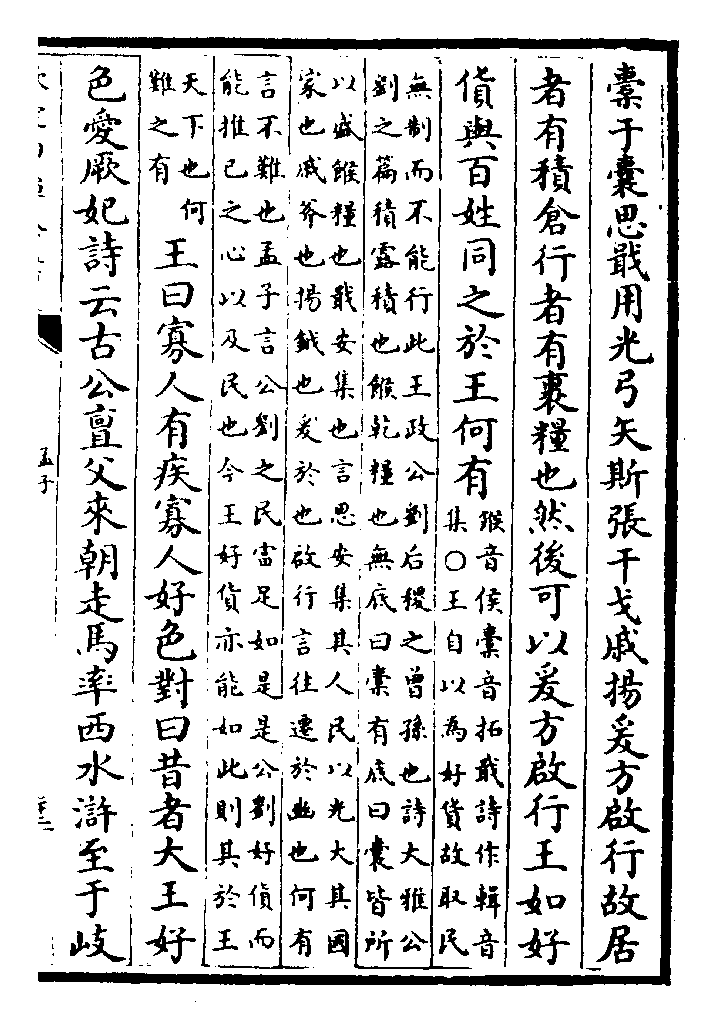 橐于囊思戢用光弓矢斯張干戈戚揚爰方啟行故居
者有積倉行者有裹糧也然後可以爰方啟行王如好
貨與百姓同之於王何有
餱音侯橐音拓戢詩作輯音
集○王自以為好貨故取民
無制而不能行此王政公劉后稷之曾孫也詩大雅公
劉之篇積露積也餱乾糧也無底曰橐有底曰囊皆所
以盛餱糧也戢安集也言思安集其人民以光大其國
家也戚斧也揚鉞也爰於也啟行言往遷於豳也何有
言不難也孟子言公劉之民富足如是是公劉好貨而
能推己之心以及民也今王好貨亦能如此則其於王
天下也何
難之有
王曰寡人有疾寡人好色對曰昔者大王好
色愛厥妃詩云古公亶父來朝走馬率西水滸至于岐
孟子